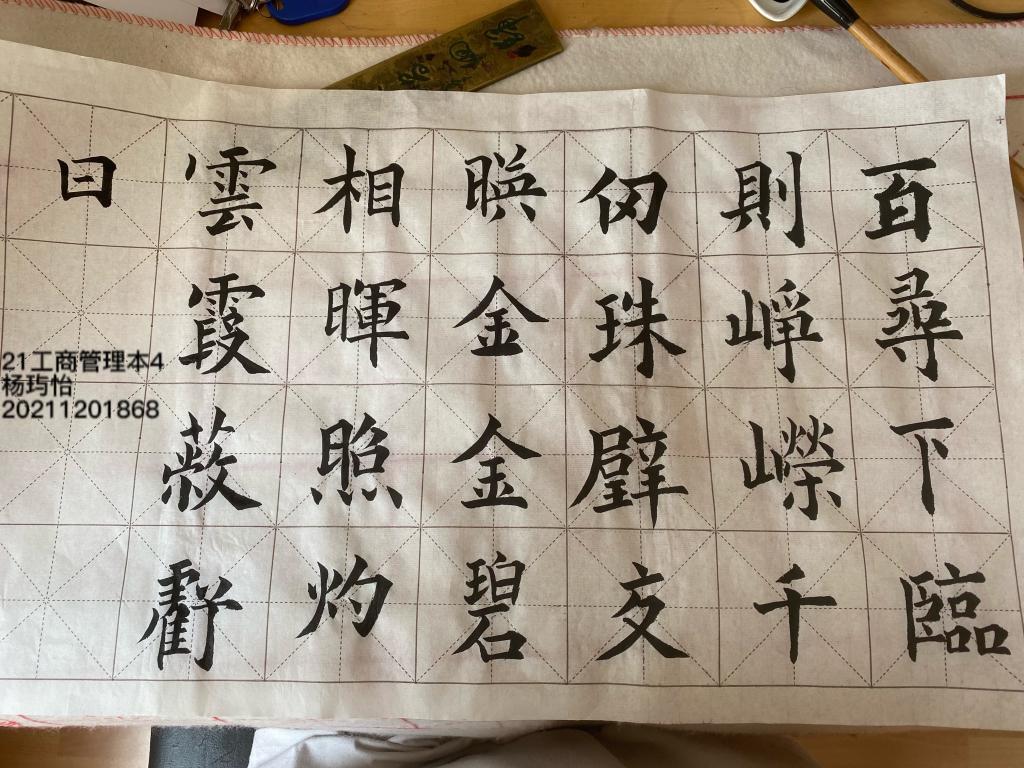 百尋下臨
則崢嶸千
仞珠壁交
暎金金碧
相暉照灼
雲霞蔽虧
日
21工商管理本4
杨玙怡
20211201868